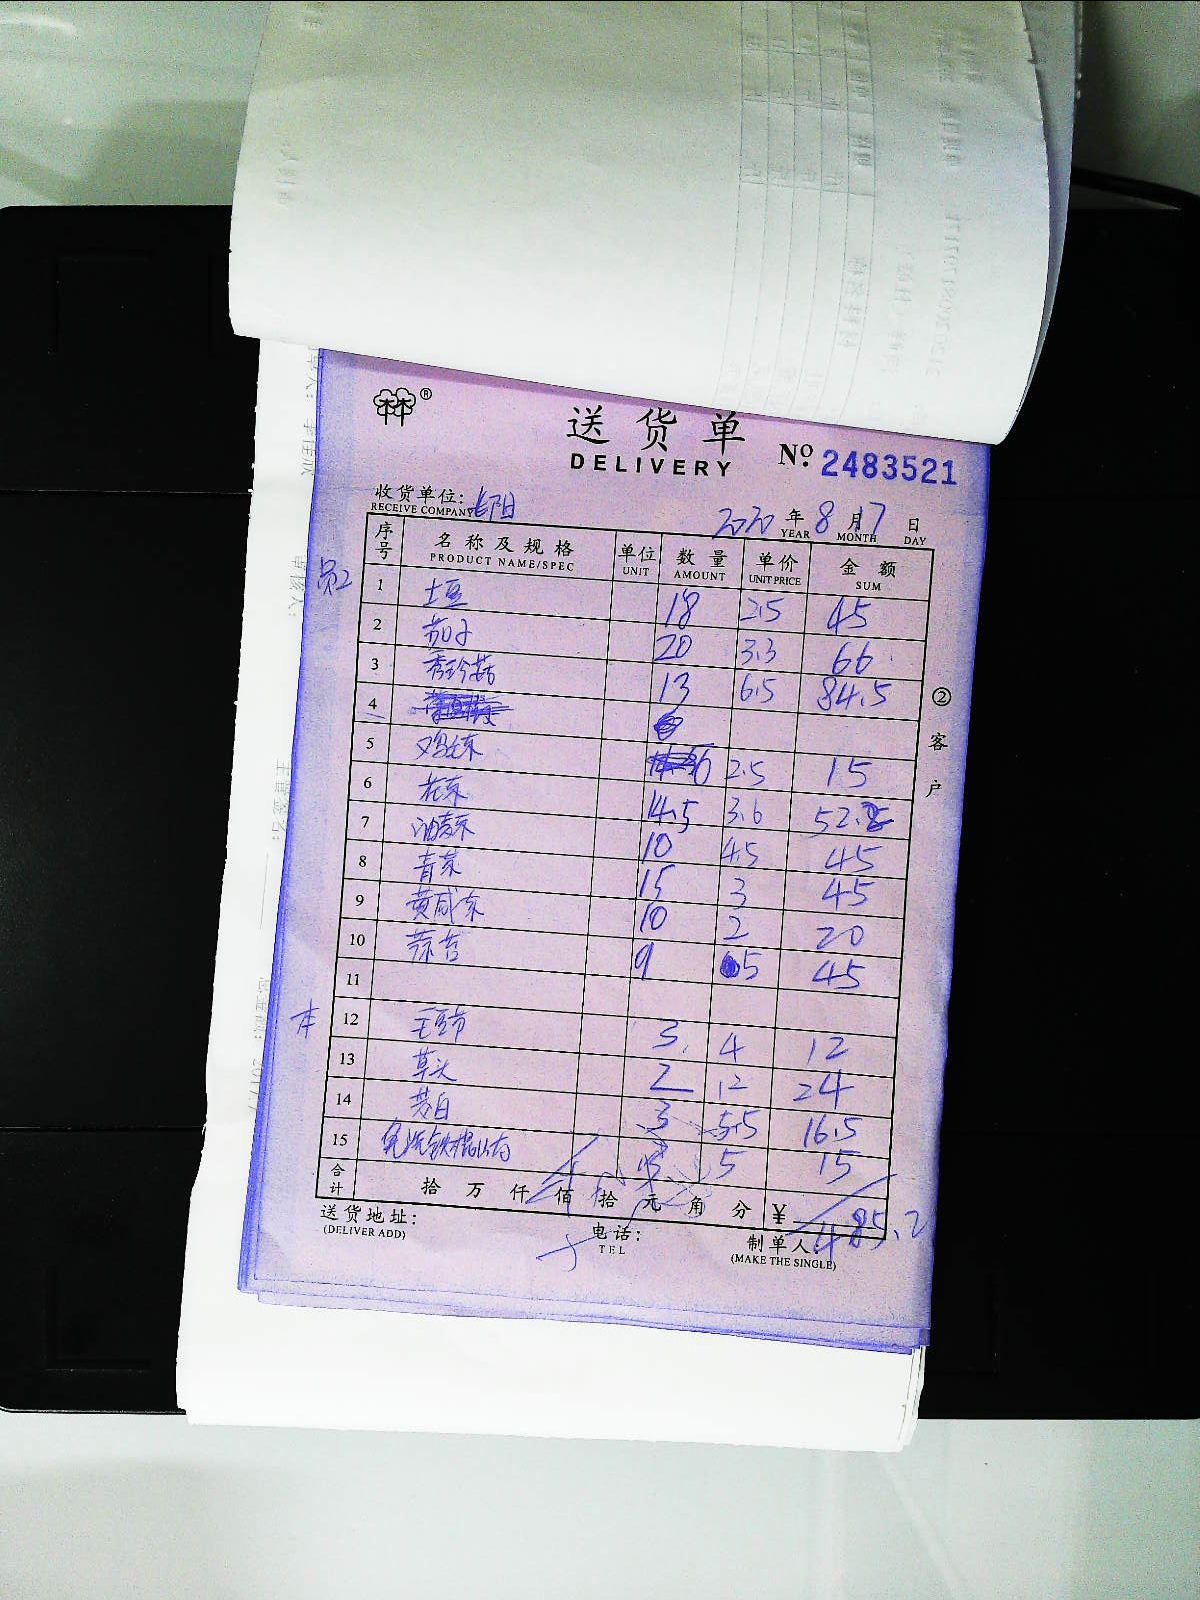 ®
送货单
DELIVERY
№ 2483521
收货单位:
RECEIVE COMPANY
2020 年 8 月 17 日
YEAR MONTH DAY
序号 名称及规格 单位 数量 单价 金额
PRODUCT NAME/SPEC UNIT AMOUNT UNIT PRICE SUM
1 土豆 18 2.5 45
2 茄子 20 3.3 66
3 秀珍菇 13 6.5 84.5
4
5 鸡毛菜 6 2.5 15
6 花菜 14.5 3.6 52.2
7 油麦菜 10 4.5 45
8 青菜 15 3 45
9 黄咸菜 10 2 20
10 蒜苔 9 5 45
11
本
12 毛豆节 3 4 12
13 草头 2 12 24
14 茭白 3 5.5 16.5
15 铁棍山药 5 15
合计 拾 万 仟 佰 拾 元 角 分 ¥ 485.2
送货地址:
(DELIVER ADD)
电话:
TEL
制单人:
(MAKE THE SINGLE)
②客户